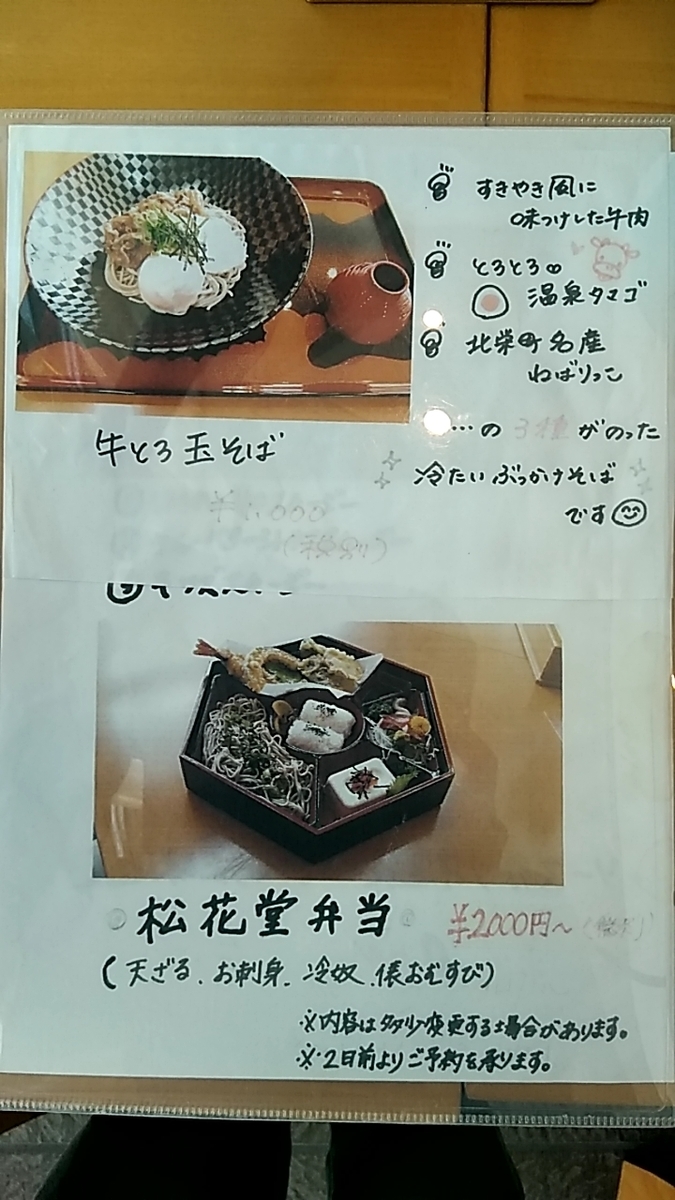 すきやき風に
味つけした牛肉
とろとろ
温泉タマゴ
北栄町名産
ねばりっこ
…の3種がのった
冷たいぶっかけそば
です
牛とろ玉そば
¥1,000
(税別)
松花堂弁当
¥2,000円〜
(天ざる、お刺身、冷奴、俵おむすび)
※内容は多少変更する場合があります。
※2日前よりご予約を承ります。